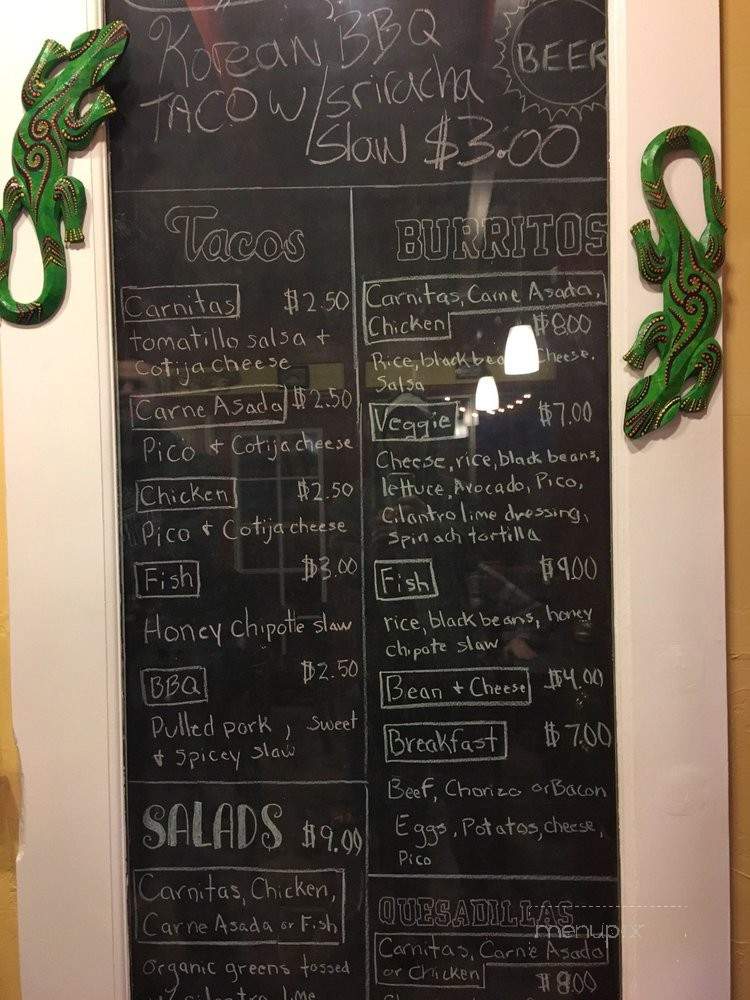 Korean BBQ
TACO w/ sriracha
slaw $3.00
BEER
Tacos
Carnitas $2.50
tomatillo salsa +
Cotija cheese
Carne Asada $2.50
Pico + Cotija cheese
Chicken $2.50
Pico + Cotija cheese
Fish $3.00
Honey Chipotle slaw
BBQ $2.50
Pulled pork, sweet
+ spicey slaw
SALADS $9.00
Carnitas, Chicken,
Carne Asada or Fish
organic greens tossed
w/ cilantro lime
BURRITOS
Carnitas, Carne Asada,
Chicken $8.00
Rice, black bea Cheese.
Salsa
Veggie $7.00
Cheese, rice, black beans,
lettuce, Avocado, Pico,
Cilantro lime dressing,
spinach tortilla
Fish $9.00
rice, black beans, honey
chipote slaw
Bean + Cheese $4.00
Breakfast $7.00
Beef, Chorizo or Bacon
Eggs, Potatos, cheese,
Pico
QUESADILLAS
Carnitas, Carne Asada
or Chicken $8.00
menupix